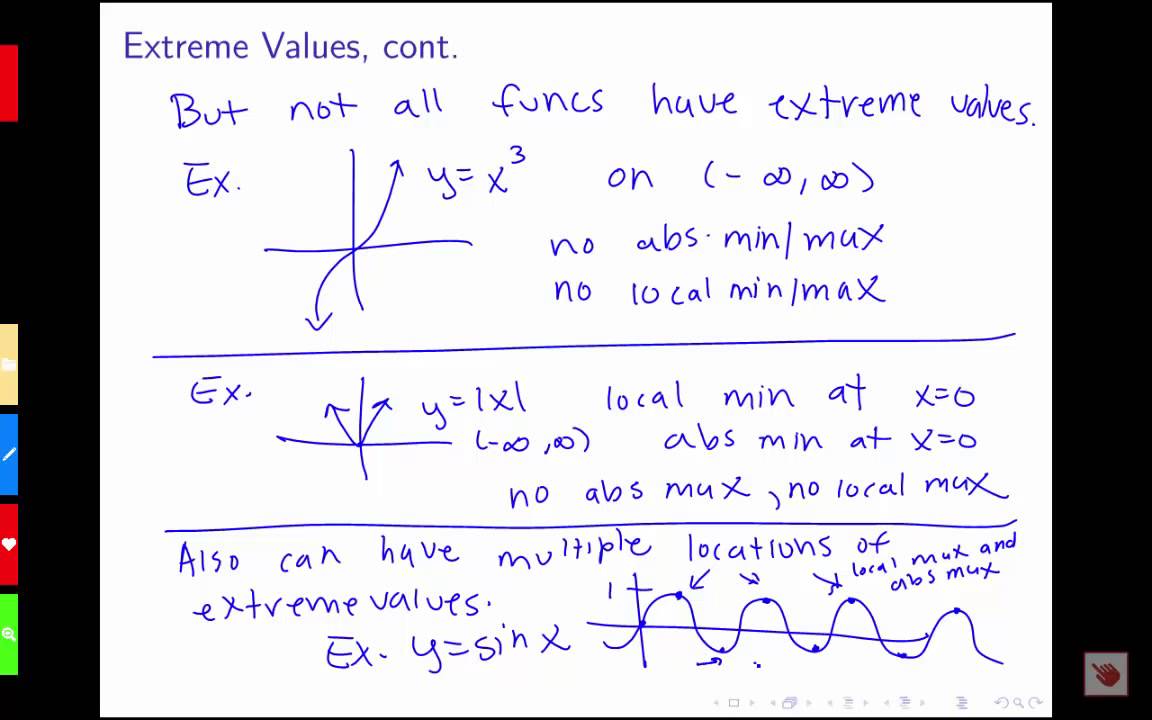 Extreme Values, cont.
But not all funcs have extreme values.
Ex. y=x³ on (-∞,∞)
no abs. min/max
no local min/max
Ex. y=|x| local min at x=0
(-∞,∞) abs min at x=0
no abs max, no local max
Also can have multiple locations of
local max and
abs max
extreme values.
1
Ex. y=sin x